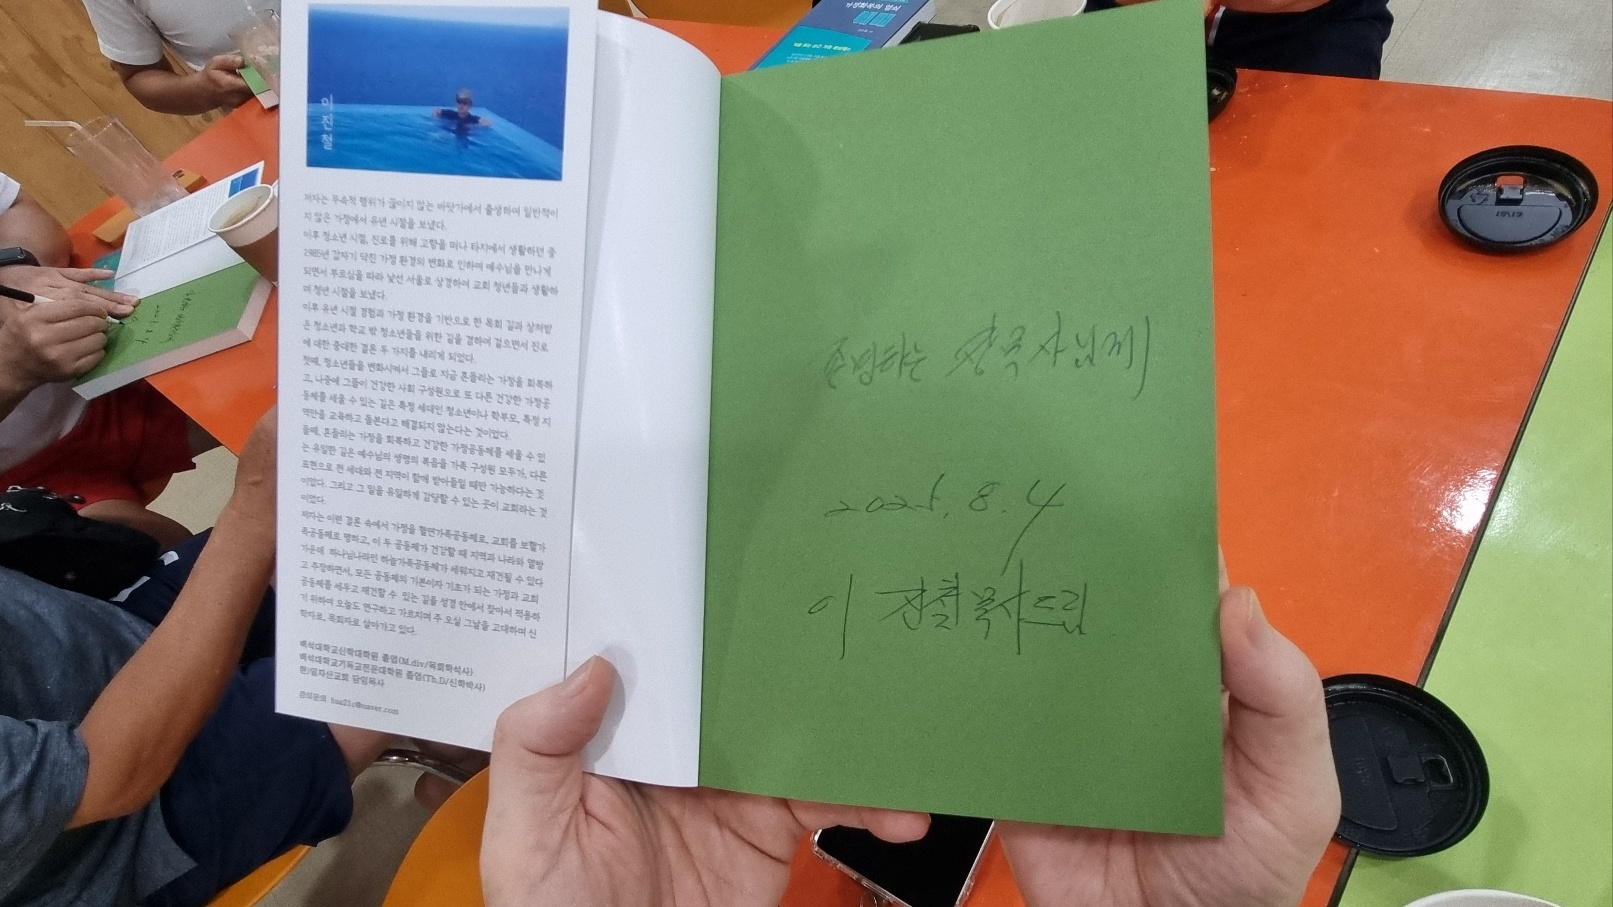 이진철
저자는 무속적 행위가 끊이지 않는 바닷가에서 출생하여 일반적이
지 않은 가정에서 유년 시절을 보냈다.
이후 청소년 시절, 진로를 위해 고향을 떠나 타지에서 생활하던 중
1985년 갑자기 닥친 가정 환경의 변화로 인하여 예수님을 만나게
되면서 부르심을 따라 낯선 서울로 상경하여 교회 청년들과 생활하
며 청년 시절을 보냈다.
이후 유년 시절 경험과 가정 환경을 기반으로 한 목회 길과 상처받
은 청소년과 학교 밖 청소년들을 위한 길을 겸하여 걸으면서 진로
에 대한 중대한 결론 두 가지를 내리게 되었다.
첫째, 청소년들을 변화시켜서 그들로 지금 흔들리는 가정을 회복하
고, 나중에 그들이 건강한 사회 구성원으로 또 다른 건강한 가정공
동체를 세울 수 있는 길은 특정 세대인 청소년이나 학부모, 특정 지
역만을 교육하고 돌본다고 해결되지 않는다는 것이었다.
둘째, 흔들리는 가정을 회복하고 건강한 가정공동체를 세울 수 있
는 유일한 길은 예수님의 생명의 복음을 가족 구성원 모두가, 다른
표현으로 전 세대와 전 지역이 함께 받아들일 때만 가능하다는 것
이었다. 그리고 그 일을 유일하게 감당할 수 있는 곳이 교회라는 것
이었다.
저자는 이런 결론 속에서 가정을 혈연가족공동체로, 교회를 보혈가
족공동체로 명하고, 이 두 공동체가 건강할 때 지역과 나라와 열방
가운데 하나님나라인 하늘가족공동체가 세워지고 재건될 수 있다
고 주장하면서, 모든 공동체의 기본이자 기초가 되는 가정과 교회
공동체를 세우고 재건할 수 있는 길을 성경 안에서 찾아서 적용하
기 위하여 오늘도 연구하고 가르치며 주 오실 그날을 고대하며 신
학자로, 목회자로 살아가고 있다.
백석대학교신학대학원 졸업(M.div/목회학석사)
백석대학교기독교전문대학원 졸업(Th.D/신학박사)
담임목사
hua21c@naver.com
목사님께
2025. 8. 4
이진철 목사 드림